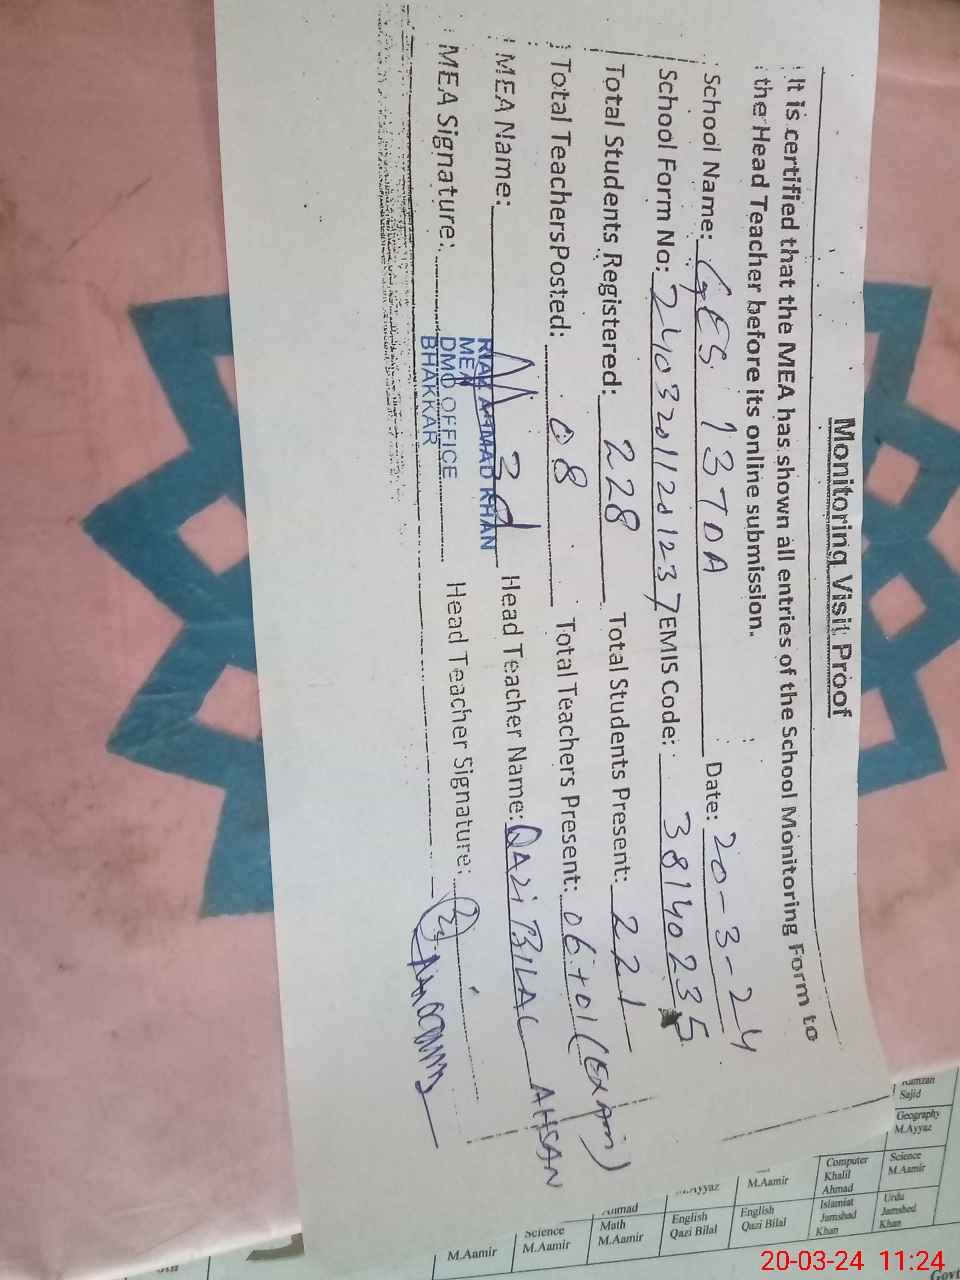 Monitoring Visit Proof
It is certified that the MEA has shown all entries of the School Monitoring Form to
the Head Teacher before its online submission.
School Name: GES 137DA Date: 20-3-24
School Form No: 24032011201237 EMIS Code: 38140235
Total Students Registered: 228 Total Students Present: 221
Total TeachersPosted: 08 Total Teachers Present: 06+01(Exam)
MEA Name: Head Teacher Name: QAZi BILAL AHSAN
MEA Signature: Head Teacher Signature:
RIAZ AHMAD KHAN
MEA
DMO OFFICE
BHAKKAR
Ramzan
Sajid
Geography
M.Ayyaz
Computer
Khalil
Ahmad
Science
M.Aamir
M.Aamir
Islamiat
Jamshad
Khan
Urdu
Jamshed
Khan
English
Qazi Bilal
English
Qazi Bilal
Math
M.Aamir
Science
M.Aamir
M.Aamir
Govt
20-03-24 11:24